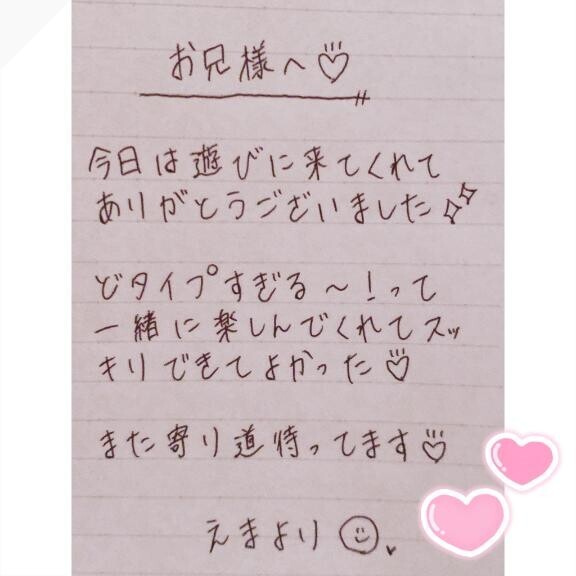 お兄様へ♡
今日は遊びに来てくれて
ありがとうございました
どタイプすぎる〜!って
一緒に楽しんでくれてスッ
キリできてよかった♡
また寄り道待ってます♡
えまより